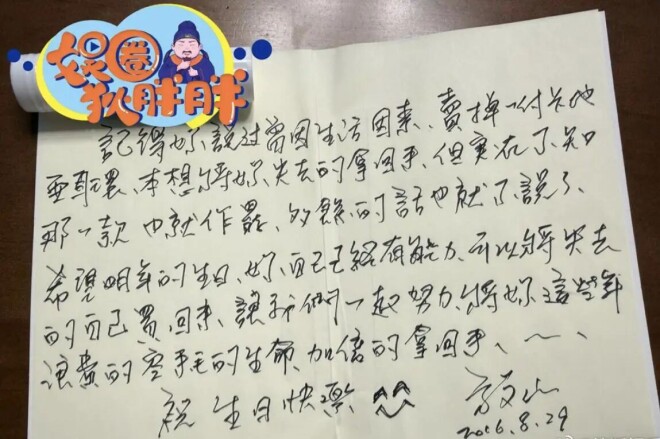 娱圈
狄胖胖
記得妳說過曾因生活因素、賣掉一付卡地
亞耳環、本想將妳失去的拿回來、但實在不知
那一款也就作罷、多餘的話也就不說了、
希望明年的生日、妳自己已經有能力、可以將失去
的自己買回來、讓我們一起努力、將妳這些年
浪費的空白的生命、加倍的拿回來、
祝生日快樂
2016.8.29